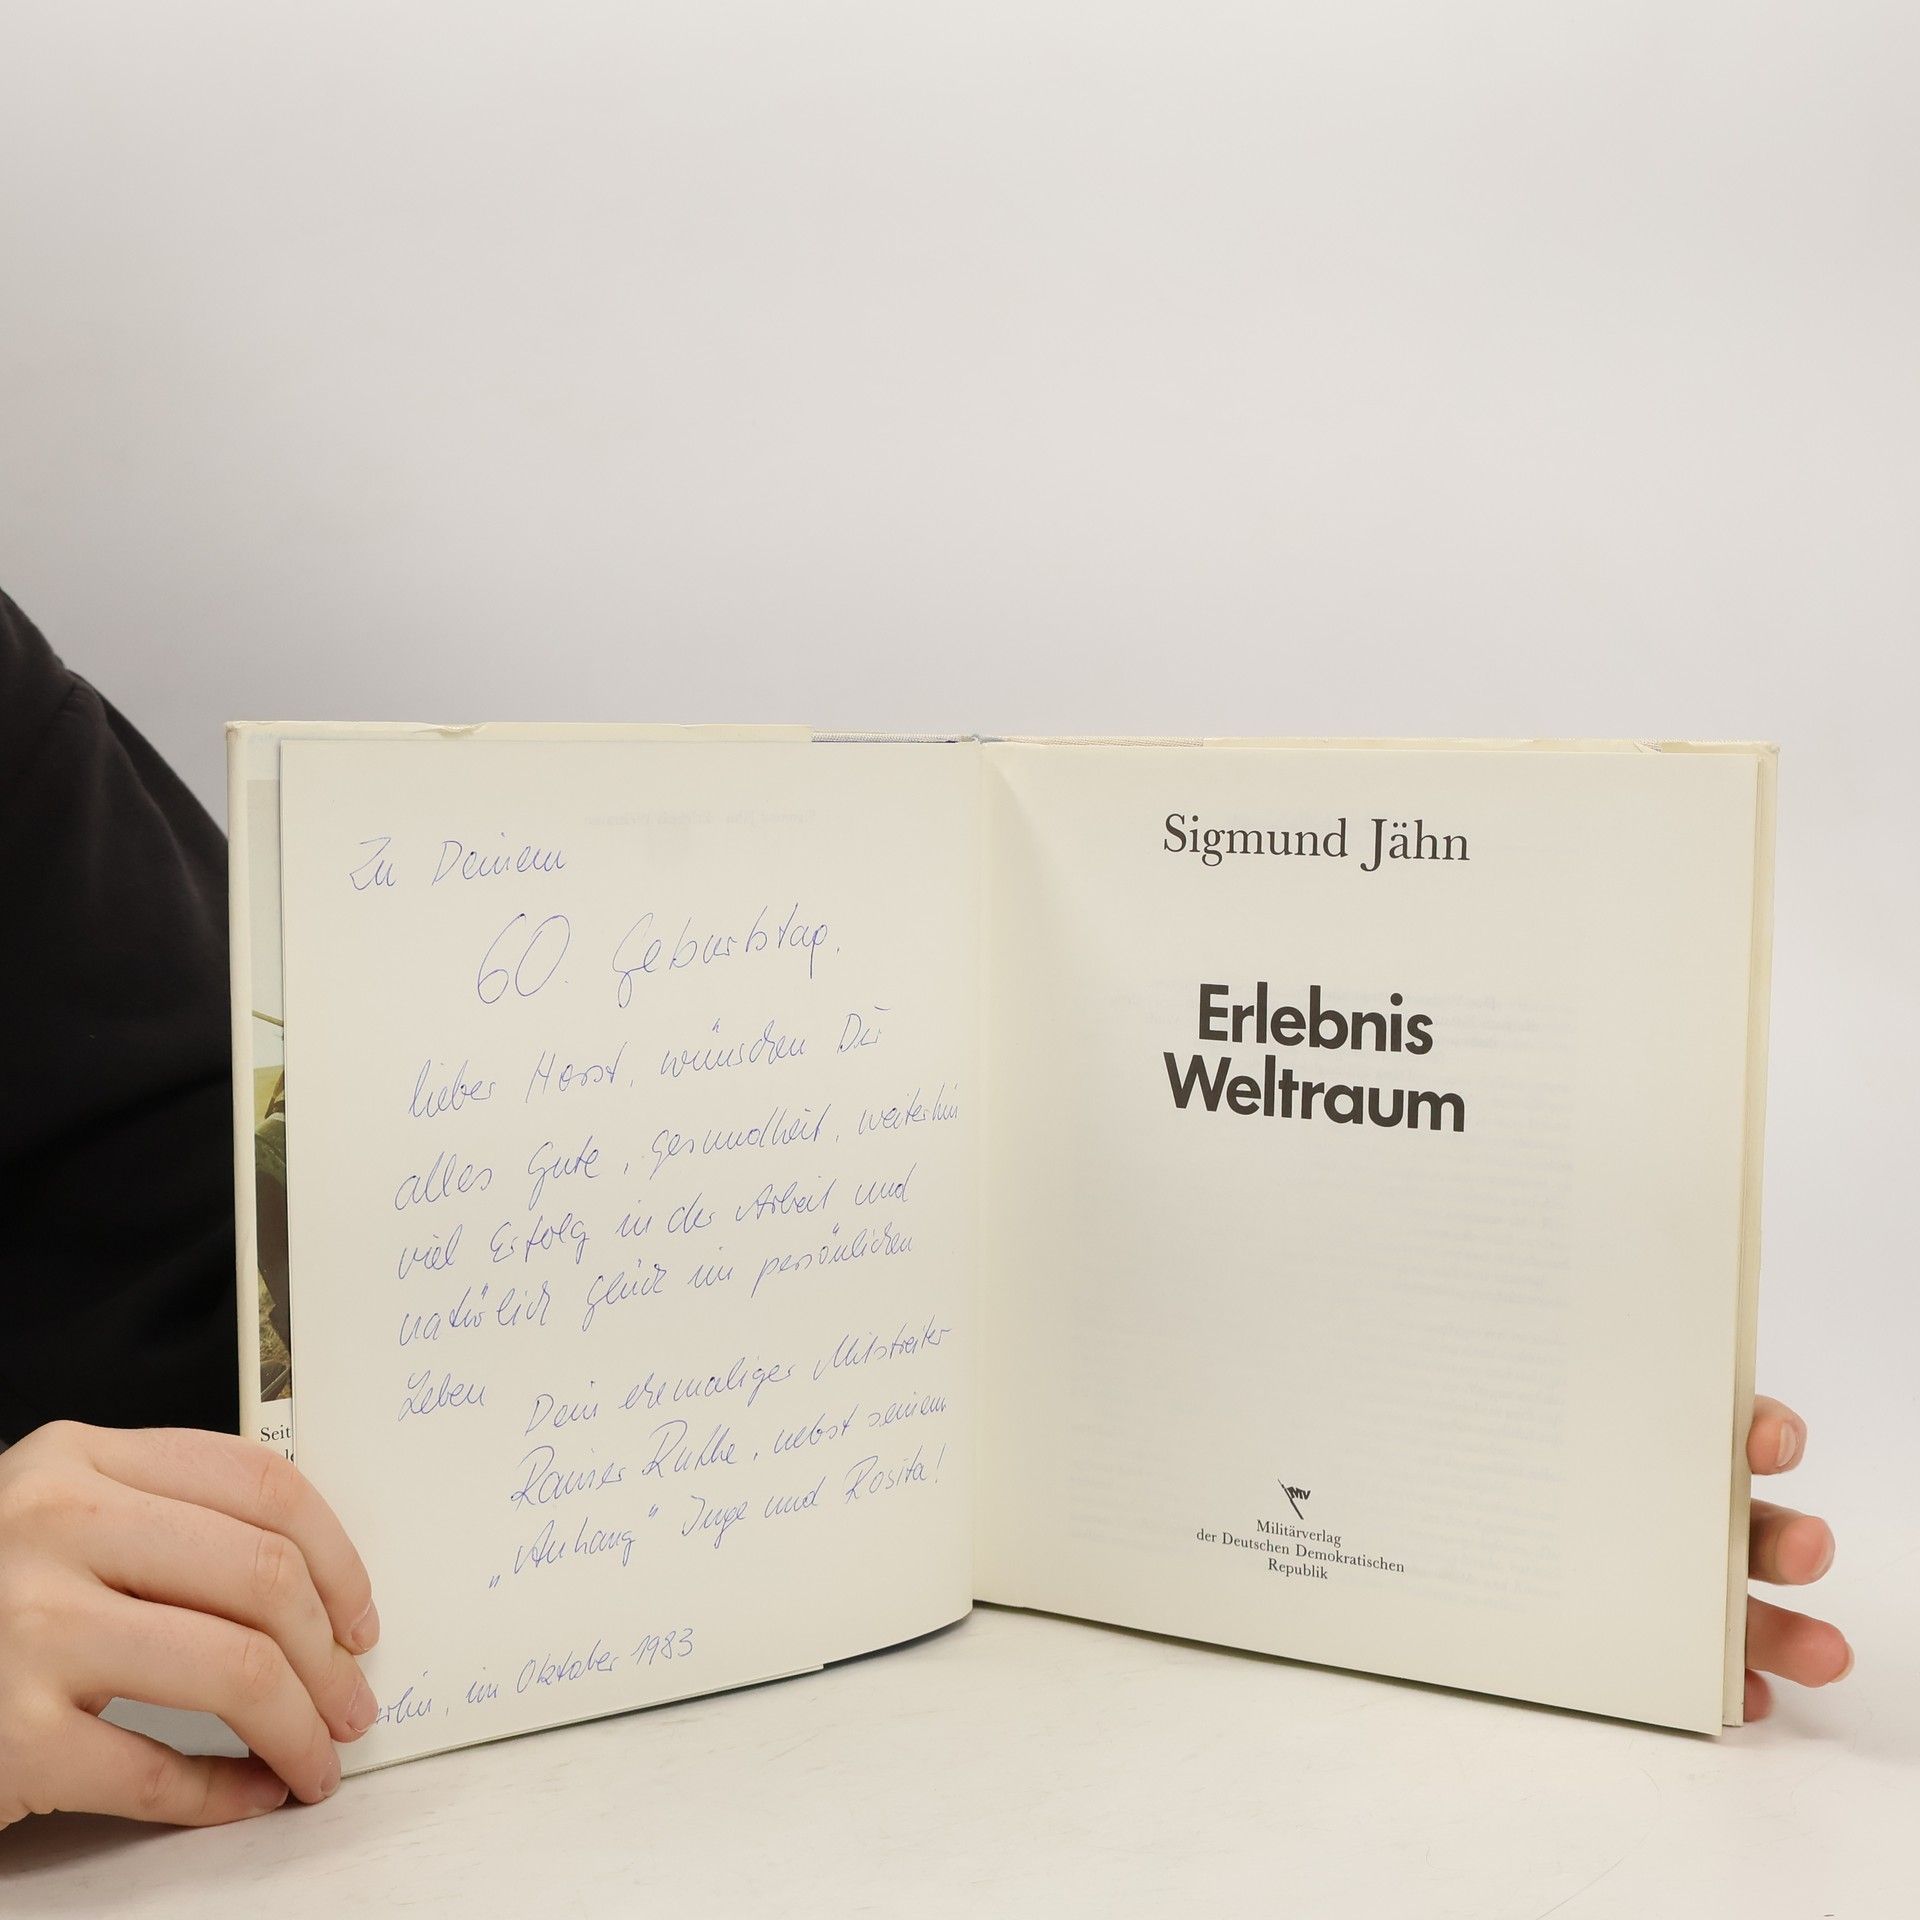 Zu Deinem
60. Geburtstag,
lieber Horst, wünschen Dir
alles Gute, Gesundheit, weiterhin
viel Erfolg in der Arbeit und
natürlich Glück im persönlichen
Leben
Dein ehemaliger Mitstreiter
Rainer, nebst seinem
„Anhang" Inge und Rosita!
erlin, im Oktober 1983
Seit
Sigmund Jähn
Erlebnis
Weltraum
MV
Militärverlag
der Deutschen Demokratischen
Republik